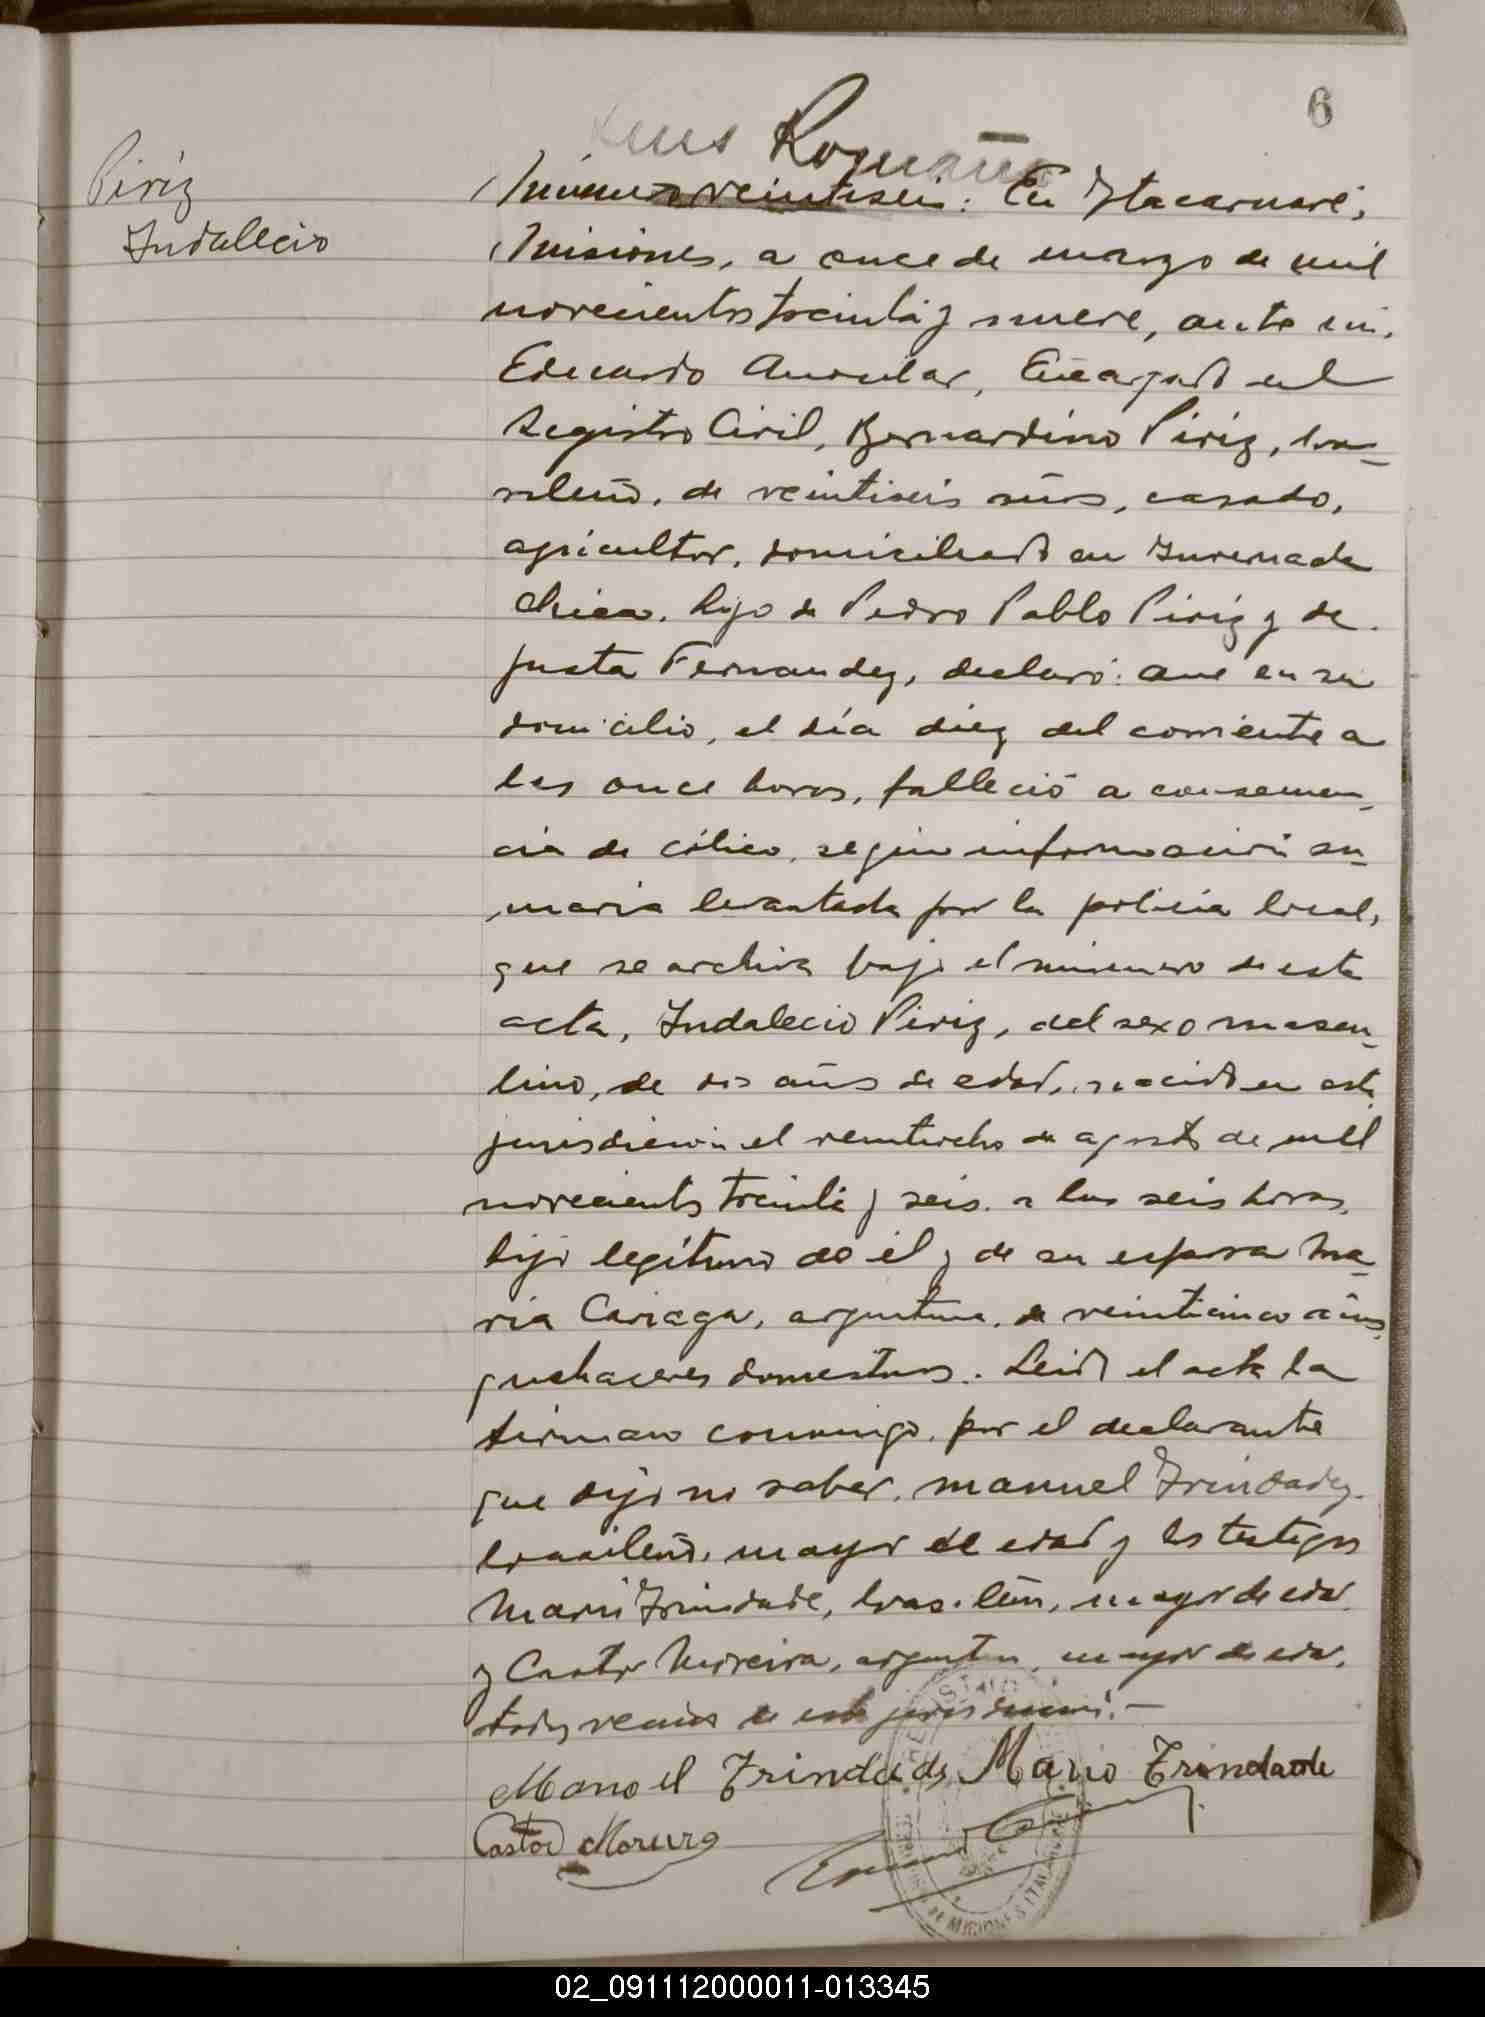 6
Luis Romaña
Piriz
Indalecio
Número veintiseis: En Itacaruaré,
Misiones, a once de marzo de mil
novecientos treinta y nueve, ante mi,
Eduardo Encargado del
Registro Civil, Bernardino Piriz, bra-
sileño, de veintiseis años, casado,
agricultor, domiciliado en Invernada
chica, hijo de Pedro Pablo Piriz y de
Justa Fernandez, declaró: Que en su
domicilio, el día diez del corriente a
las once horas, falleció a consecuen-
cia de cólico, según información su-
maria levantada por la policia local,
que se archiva bajo el número de esta
acta, Indalecio Piriz, del sexo mascu-
lino, de dos años de edad, nacido en esta
jurisdicción el veintiocho de agosto de mil
novecientos treinta y seis a las seis horas,
hijo legítimo de él y de su esposa Ma-
ria Cariaga, argentina, de veinticinco años,
quehaceres domesticos. Leida el acta la
firman conmigo, por el declarante
que dijo no saber, Manuel Trindadez
brasileño, mayor de edad y los testigos
Mario Trindade, brasileño, mayor de edad
y Castor Moreira, argentino, mayor de edad,
todos vecinos de esta jurisdicción.-
Manoel Trindade Mario Trindade
Castor Moreira
DE MISIONES ITACARUARE
02_091112000011-013345